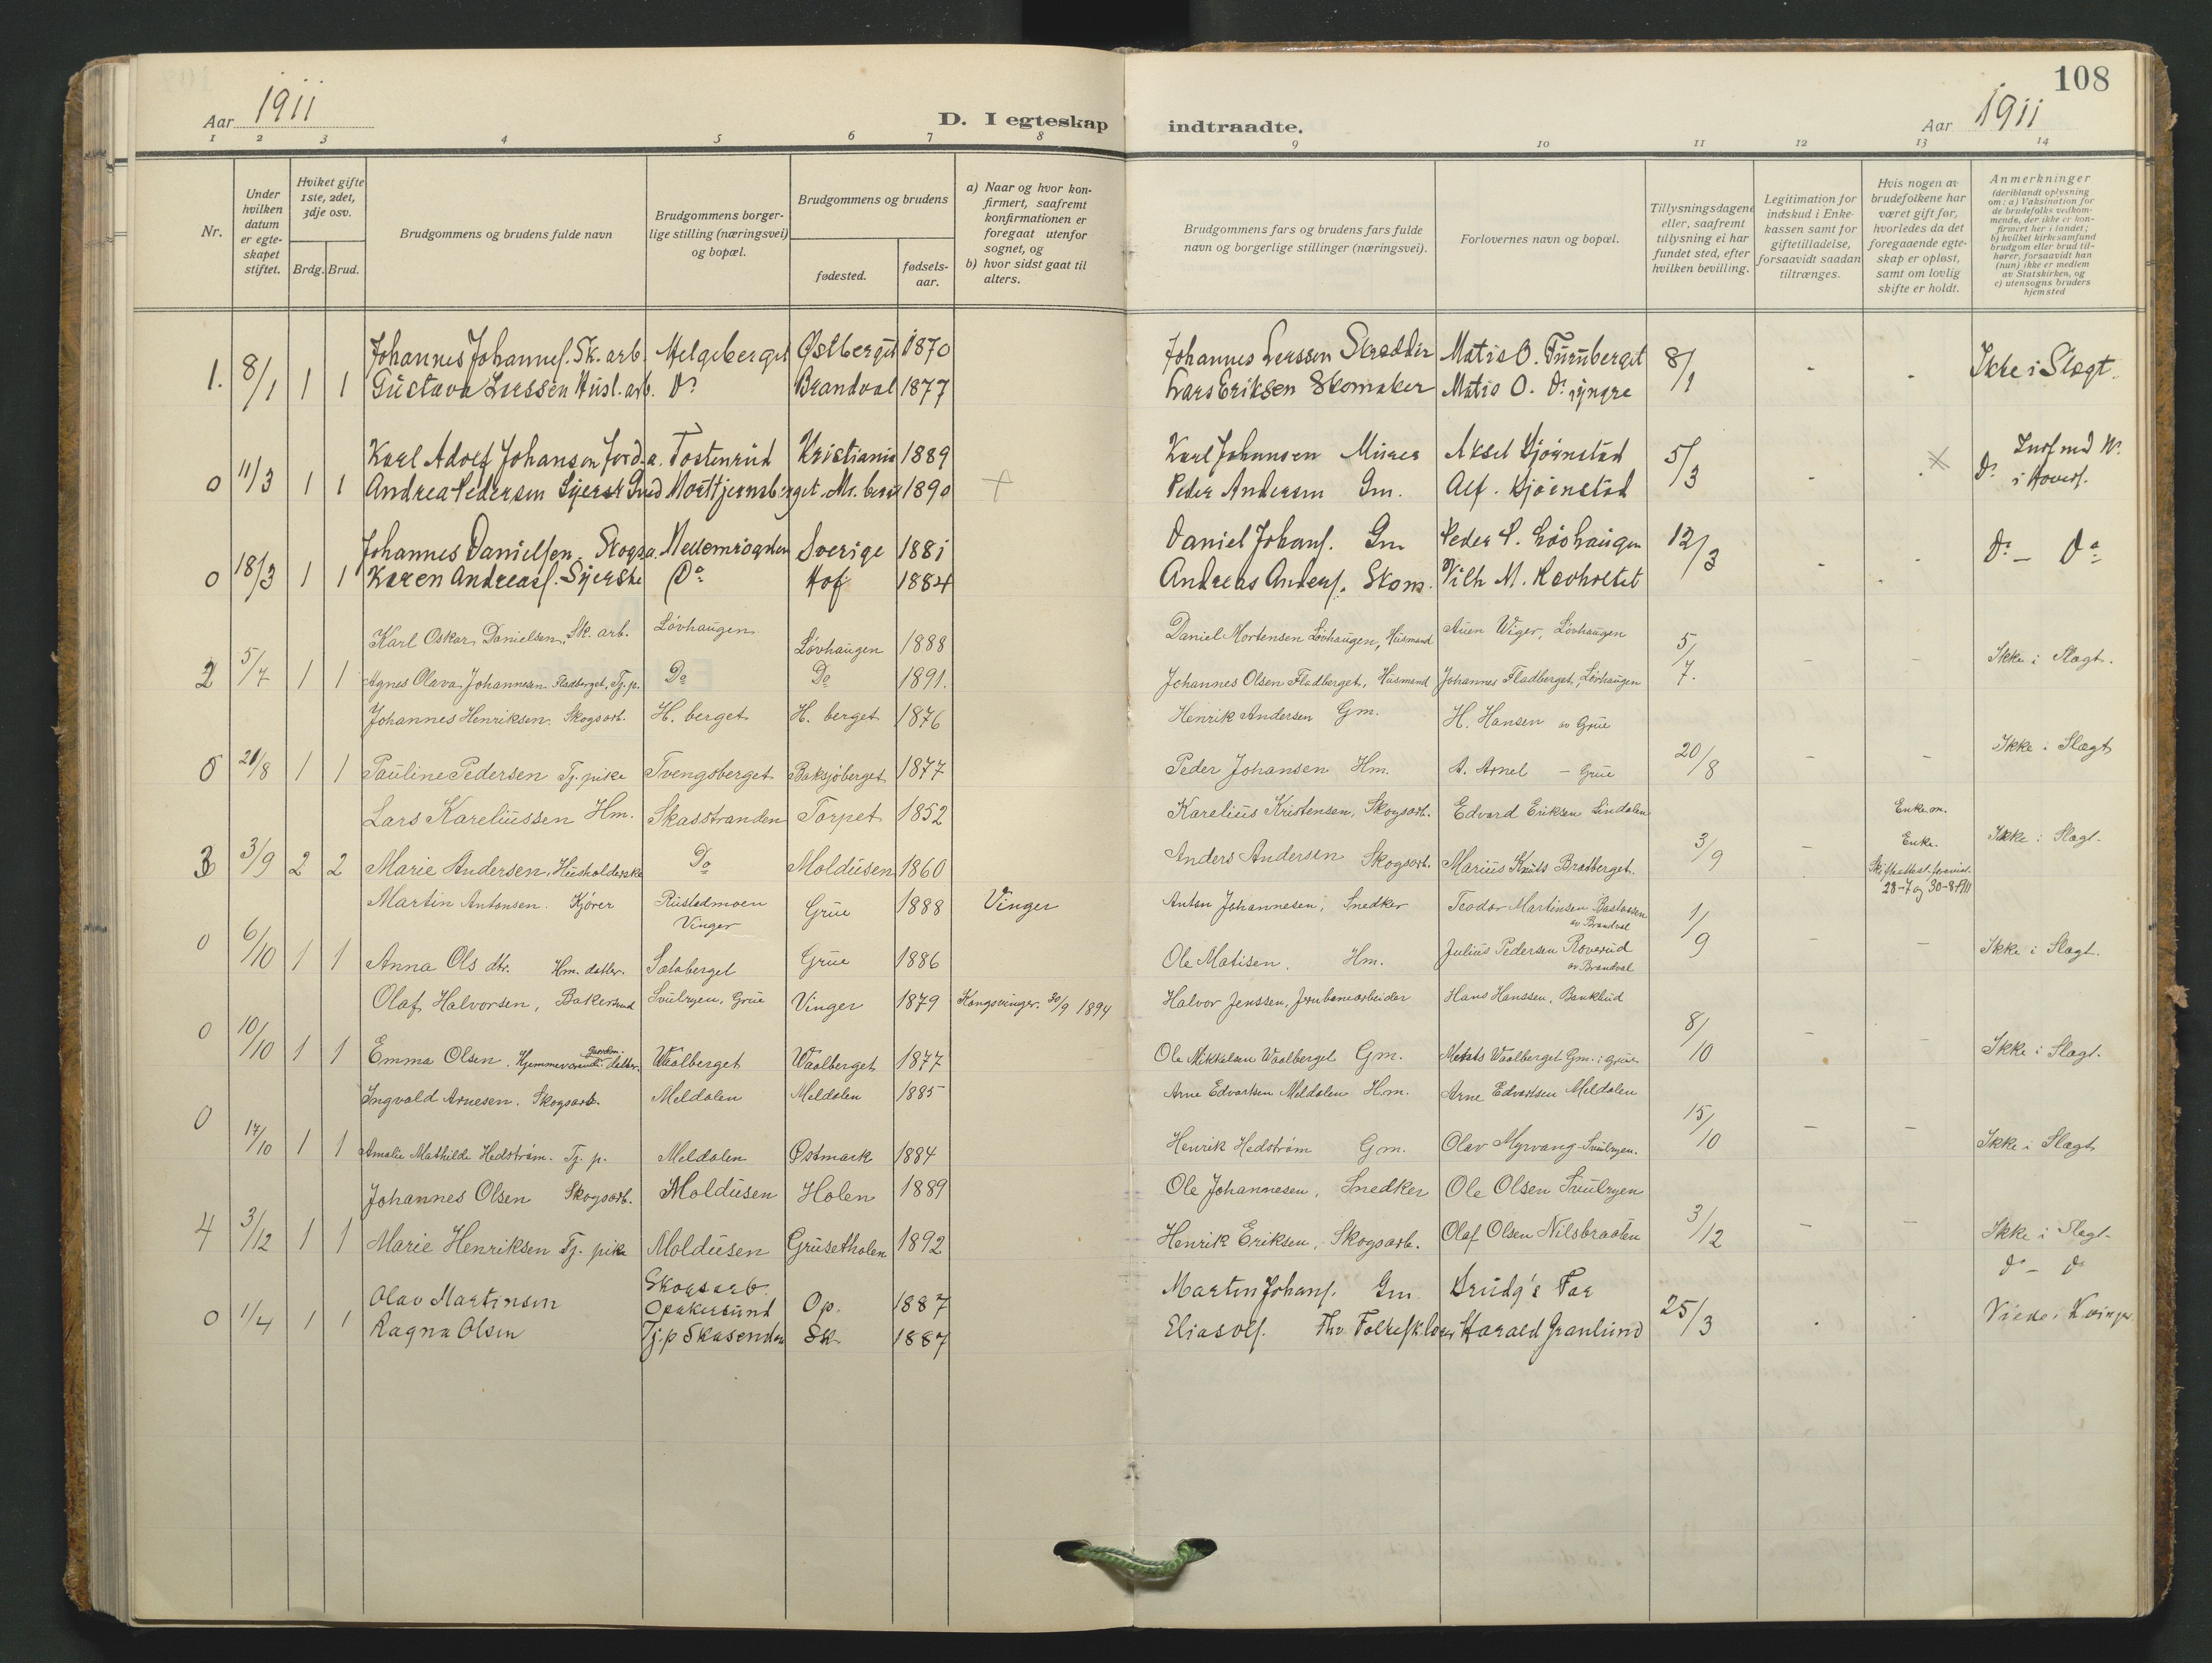 108
Aar 1911
D. I egteskap indtraadte.
Aar 1911
1 2 3 4 5 6 7 8 9 10 11 12 13 14
Nr.
Under hvilken datum er egteskapet stiftet.
Hviket gifte 1ste, 2det, 3dje osv.
Brdg. Brud.
Brudgommens og brudens fulde navn
Brudgommens borgerlige stilling (næringsvei) og bopæl.
Brudgommens og brudens
fødested.
fødselsaar.
a) Naar og hvor konfirmert, saafremt konfirmationen er foregaat utenfor sognet, og
b) hvor sidst gaat til alters.
Brudgommens fars og brudens fars fulde navn og borgerlige stillinger (næringsvei).
Forlovernes navn og bopæl.
Tillysningsdagene eller, saafremt tillysning ei har fundet sted, efter hvilken bevilling.
Legitimation for indskud i Enkekassen samt for giftetilladelse, forsaavidt saadan tiltrænges.
Hvis nogen av brudefolkene har været gift før, hvorledes da det foregaaende egteskap er opløst, samt om lovlig skifte er holdt.
Anmerkninger (deriblandt oplysning om: a) Vaksination for de brudefolks vedkommende, der ikke er konfirmert her i landet; b) hvilket kirkesamfund brudgom eller brud tilhører, forsaavidt han (hun) ikke er medlem av Statskirken, og c) utensogns bruders hjemsted
Johannes Johannes. Sk. arb. Helgeberget Østberget 1870 Johannes Larssen Skrædder Matis O. Furuberget 8/1 Ikke i Slægt.
1. 8/1 1 1 Gustava Larssen Husl. arb. Do Brandval 1877 Lars Eriksen Skomaker Matis O. Do yngre
Karl Adolf Johansen Jord.a. Tostenrud Kristiania 1889 Karl Johansen Murer Aksel Bjørnstad 5/3
0 11/3 1 1 Andrea Pedersen 1890 Peder Andersen Gm. Alf. Bjørnstad Do
Johannes Danielsen. Skogsa. Mellemrögden Sverige 1881 Daniel Johans. Gm Peder P. Lövhaugen 12/3 Do - Do
0 18/3 1 1 Karen Andreas. Syerske Do Hof 1884 Andreas Anders. Skom. Vilh M. Ravholtet
Karl Oskar Danielsen, Sk. arb. Lövhaugen Lövhaugen 1888 Daniel Mortensen Lövhaugen, Husmand Auen Wiger, Lövhaugen 5/7.
2 5/7 1 1 Agnes Olava Johannesen Fladberget, Tj. p. Do Do 1891. Johannes Olsen Fladberget, Husmand Johannes Fladberget, Lövhaugen Ikke i Slægt.
Johannes Henriksen. Skogsarb. H. berget H. berget 1876 Henrik Andersen Gm. H. Hansen av Grue
0 20/8 1 1 Pauline Pedersen Tj. pike Tvengsberget Baksjöberget 1877 Peder Johansen Hm. A. Arnel - Grue 20/8 Ikke i Slægt
Lars Kareliussen Hm. Skasstranden Torpet 1852 Karelius Kristensen, Skogsarb. Edvard Eriksen Lindalen Enkem.
3 3/9 2 2 Marie Andersen, Husholderske Do Moldusen 1860 Anders Andersen Skogsarb. Marius Knuts Bradberget. 3/9 Enke. Ikke i Slægt.
28-7 og 30-8-1911
Martin Antonsen. Kjörer Rustadmoen Vinger Grue 1888 Vinger Anton Johannesen, Snedker Teodor Martinsen av Brandval 1/9
0 6/10 1 1 Anna Ols dtr. Hm. datter. Sætaberget Grue 1886 Ole Matisen. Hm. Julius Pedersen Roverud av Brandval Ikke i Slægt.
Olaf Halvorsen, Bakersvend Svulryen, Grue Vinger 1879 Kongsvinger. 30/9 1894 Halvor Jenssen, Jernbanearbeider Hans Hanssen,
0 10/10 1 1 Emma Olsen. Hjemmeværende gaardm. datter. Waalberget Waalberget 1877 Ole Mikkelsen Waalberget Gm. Matts Waalberget Gm. i Grue 8/10 Ikke i Slægt.
Ingvald Arnesen. Skogsarb. Meldalen Meldalen 1885 Arne Edvartsen Meldalen Hm. Arne Edvartsen Meldalen
0 17/10 1 1 Amalie Mathilde Hedström. Tj. p. Meldalen Østmark 1884 Henrik Hedström Gm. Olav Myrvang Svulryen. 15/10 Ikke i Slægt
Johannes Olsen Skogsarb. Moldusen Holen 1889 Ole Johannesen, Snedker Ole Olsen Svulryen
4 3/12 1 1 Marie Henriksen Tj. pike Moldusen Grusetholen 1892 Henrik Eriksen, Skogsarb. Olaf Olsen Nilsbraaten 3/12 Ikke i Slægt.
Olav Martinsen Skogsarb. Opakersund Op. 1887 Martin Johans. Gm Brudg's Far 25/3 Do - Do
0 1/4 1 1 Ragna Olsen Tj.p Skasenden Sk. 1887 Elias Ols. Harald Granlund Viede i